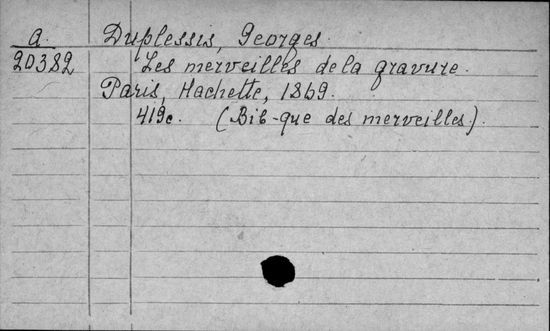 a. Duplessis, Georges.
20382 Les merveilles de la gravure.
Paris, Hachette, 1869.
419c. (Bib-que des merveilles).